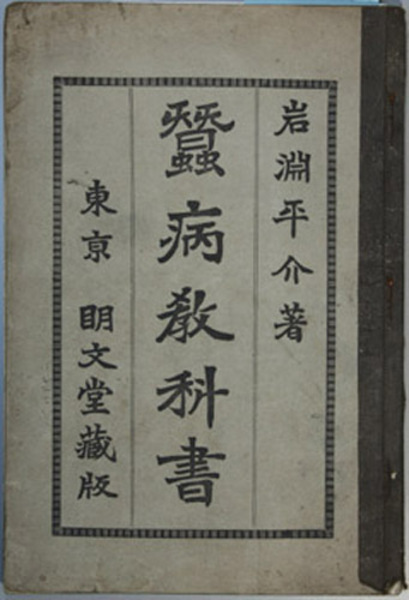 岩淵平介著
蠶病教科書
東京 明文堂藏版